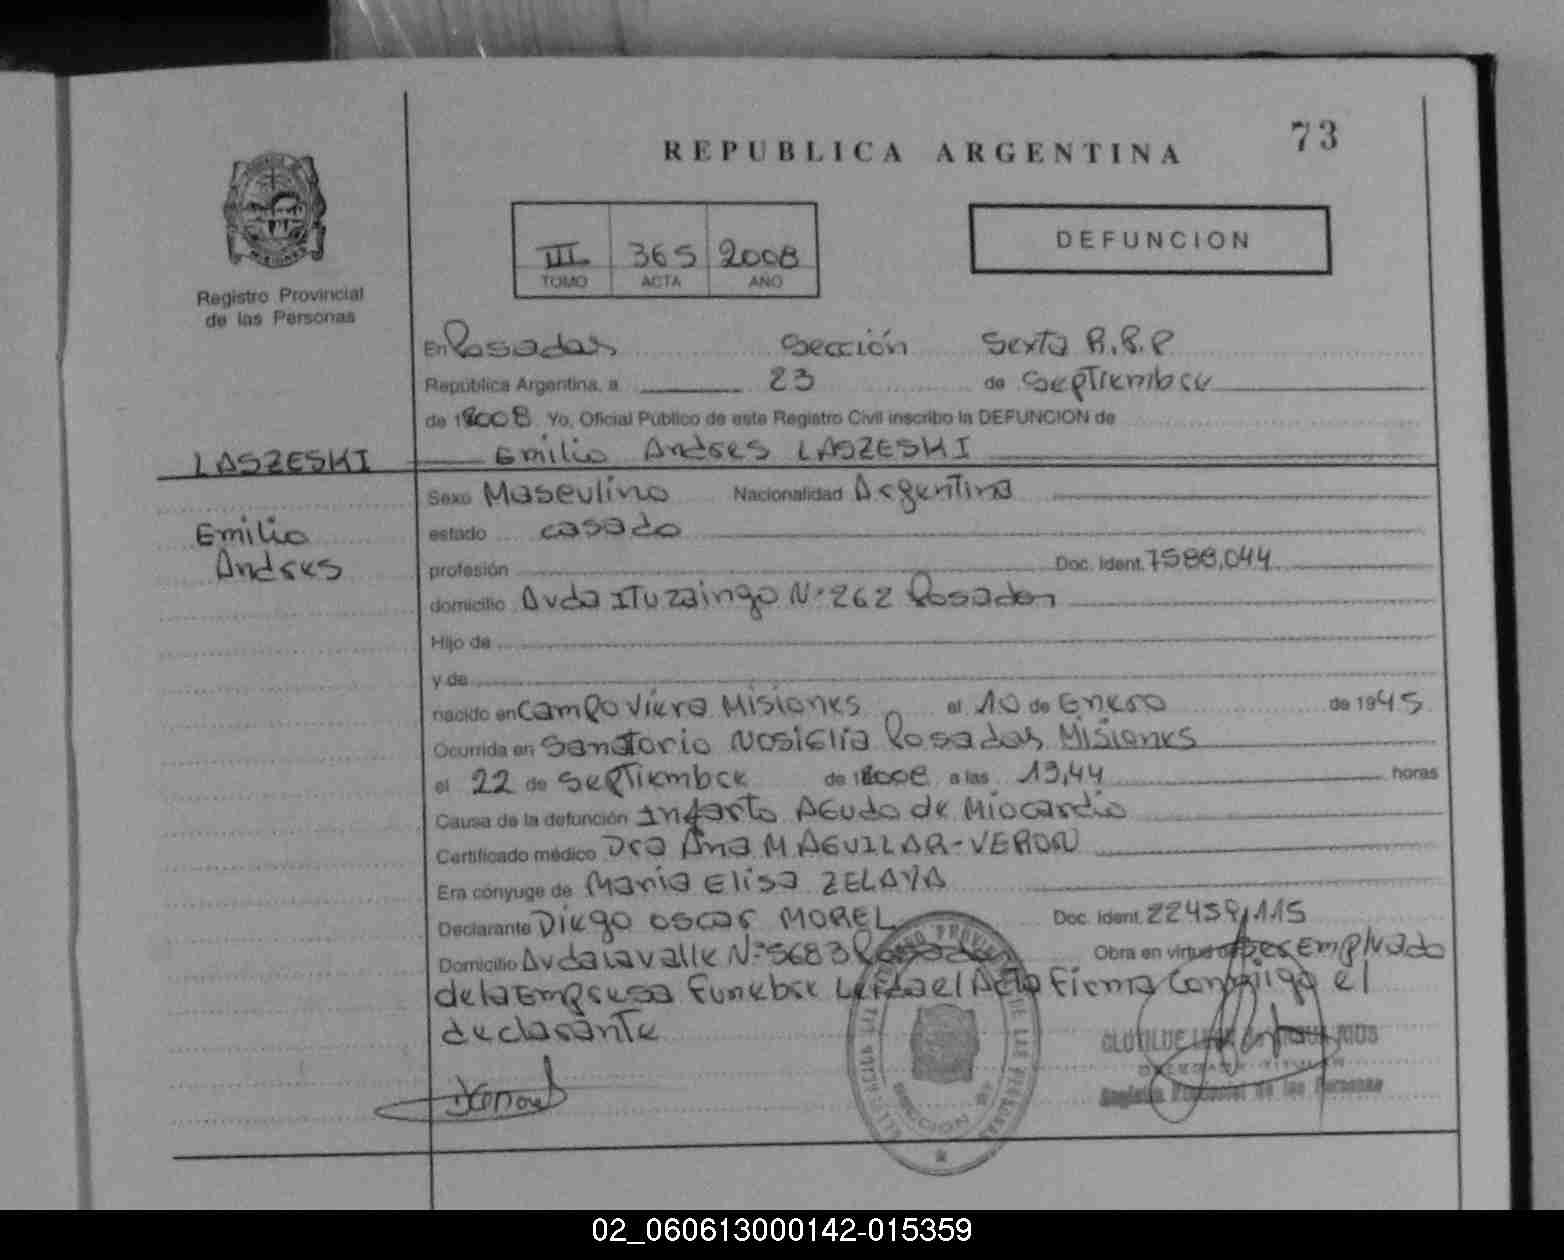 73
REPUBLICA ARGENTINA
III 365 2008
TOMO ACTA AÑO
DEFUNCION
MISIONES
Registro Provincial
de las Personas
En Posadas Sección Sexta R.P.P
República Argentina, a 23 de Septiembre
de 2008 Yo, Oficial Público de este Registro Civil inscribo la DEFUNCION de
LASZESKI Emilio Andres LASZESKI
Sexo Masculino Nacionalidad Argentina
Emilio estado casado
Andres profesión Doc. Ident. 7588,044
domicilio Avda ITuzaingo N° 262 Posadas
Hijo de
y de
nacido en Campo Viera Misiones el 10 de Enero de 1945
Ocurrida en Sanatorio Nosiglia Posadas Misiones
el 22 de Septiembre de 2008 a las 13,44 horas
Causa de la defunción Infarto Agudo de Miocardio
Certificado médico Dra Ana M AGUILAR-VERON
Era cónyuge de Maria Elisa ZELAYA
Declarante Diego Oscar MOREL Doc. Ident. 22459,115
Domicilio Avda Lavalle N° 5683 Posadas Obra en virtud de ser Empleado
de la Empresa Funebre Leida el Acta Firma Conmigo el
declarante
CLOTILDE
DELEGADA TITULAR
Registro Provincial de las Personas
REGISTRO PROVINCIAL DE LAS PERSONAS
SECCION
02_060613000142-015359